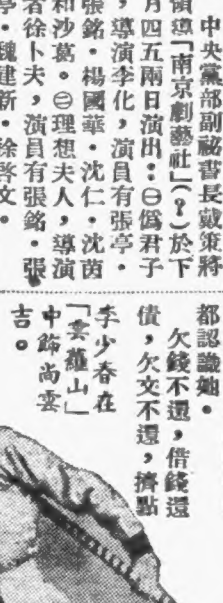 中央黨部副祕書長戴策將
領導「南京劇藝社」(?)於下
月四五兩日演出：㊀僞君子
，導演李化，演員有張亭．
張銘．楊國華．沈仁．沈茵
和沙葛。㊁理想夫人，導演
者徐卜夫，演員有張銘．張
亭．魏建新．徐啓文。
都認識她。
欠錢不還，借錢還
債，欠文不還，擠點
李少春在
「雲蘿山」
中飾尚雲
吉。